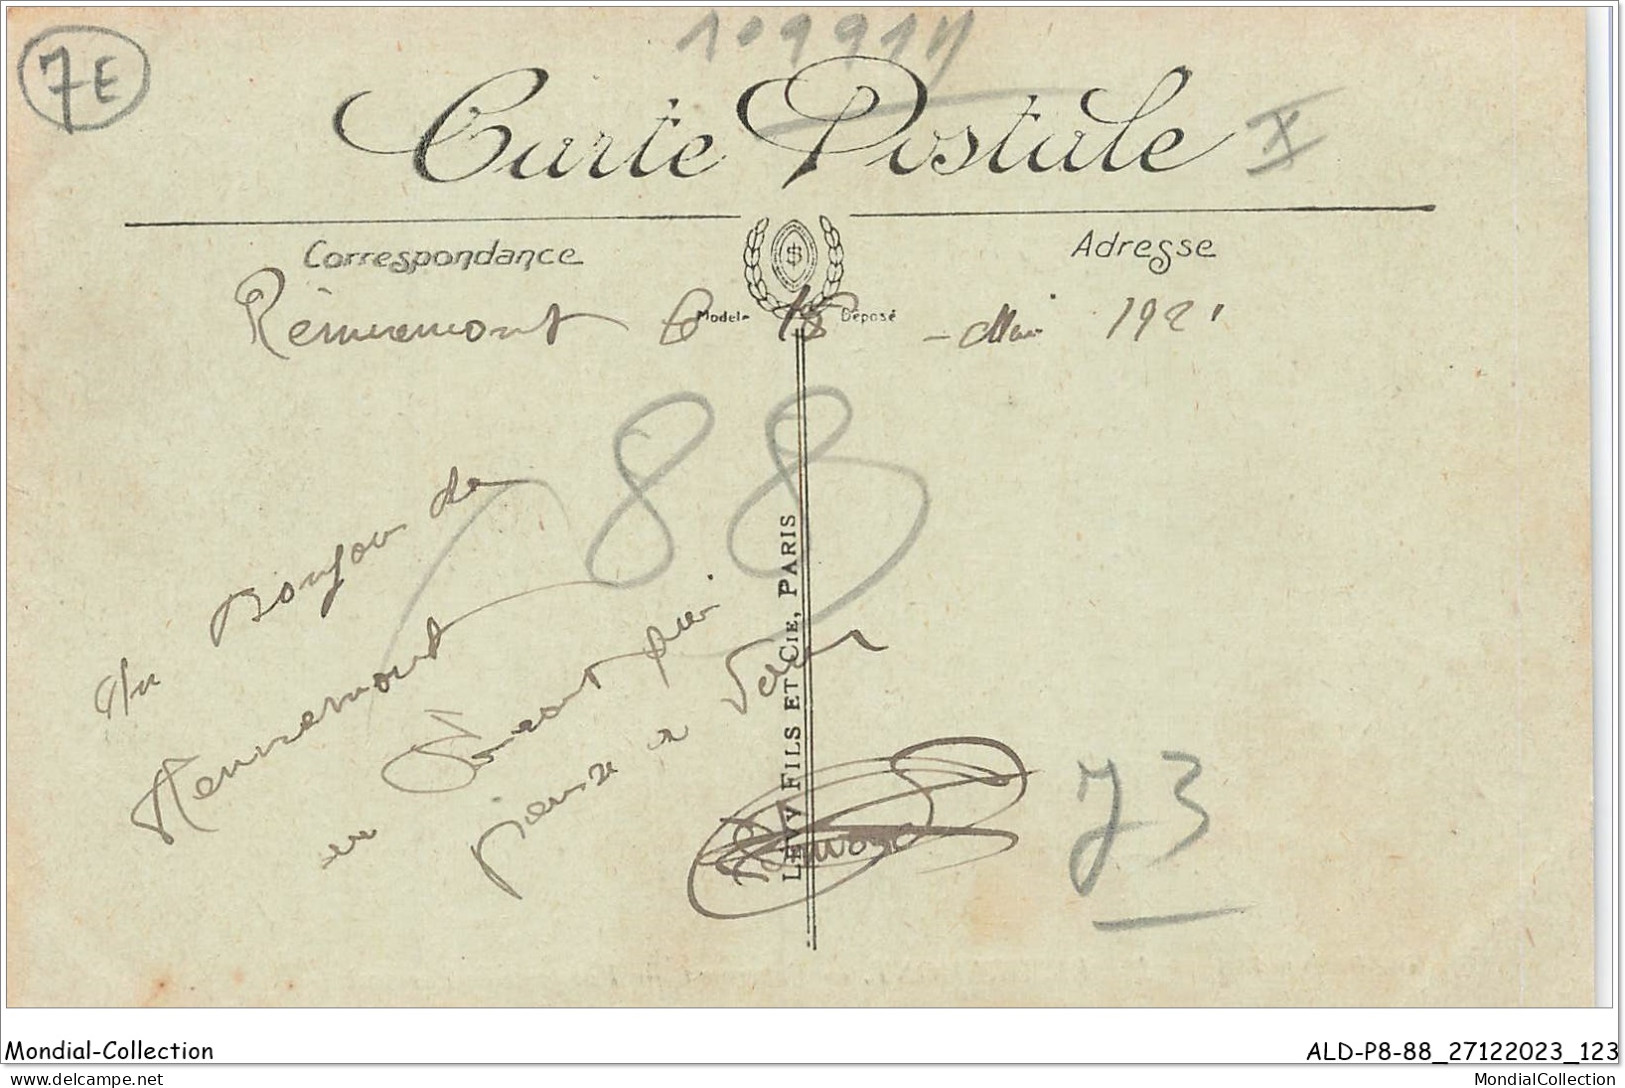 7E
10991
Carte Postale
Correspondance
Adresse
Modele Déposé
Rémiremont 18 - Mai 1921
88
Un Bonjour de
Remiremont
en
pense a
LÉVY FILS ET CIE, PARIS
73
Mondial-Collection
ALD-P8-88_27122023_123
www.delcampe.net
MondialCollection